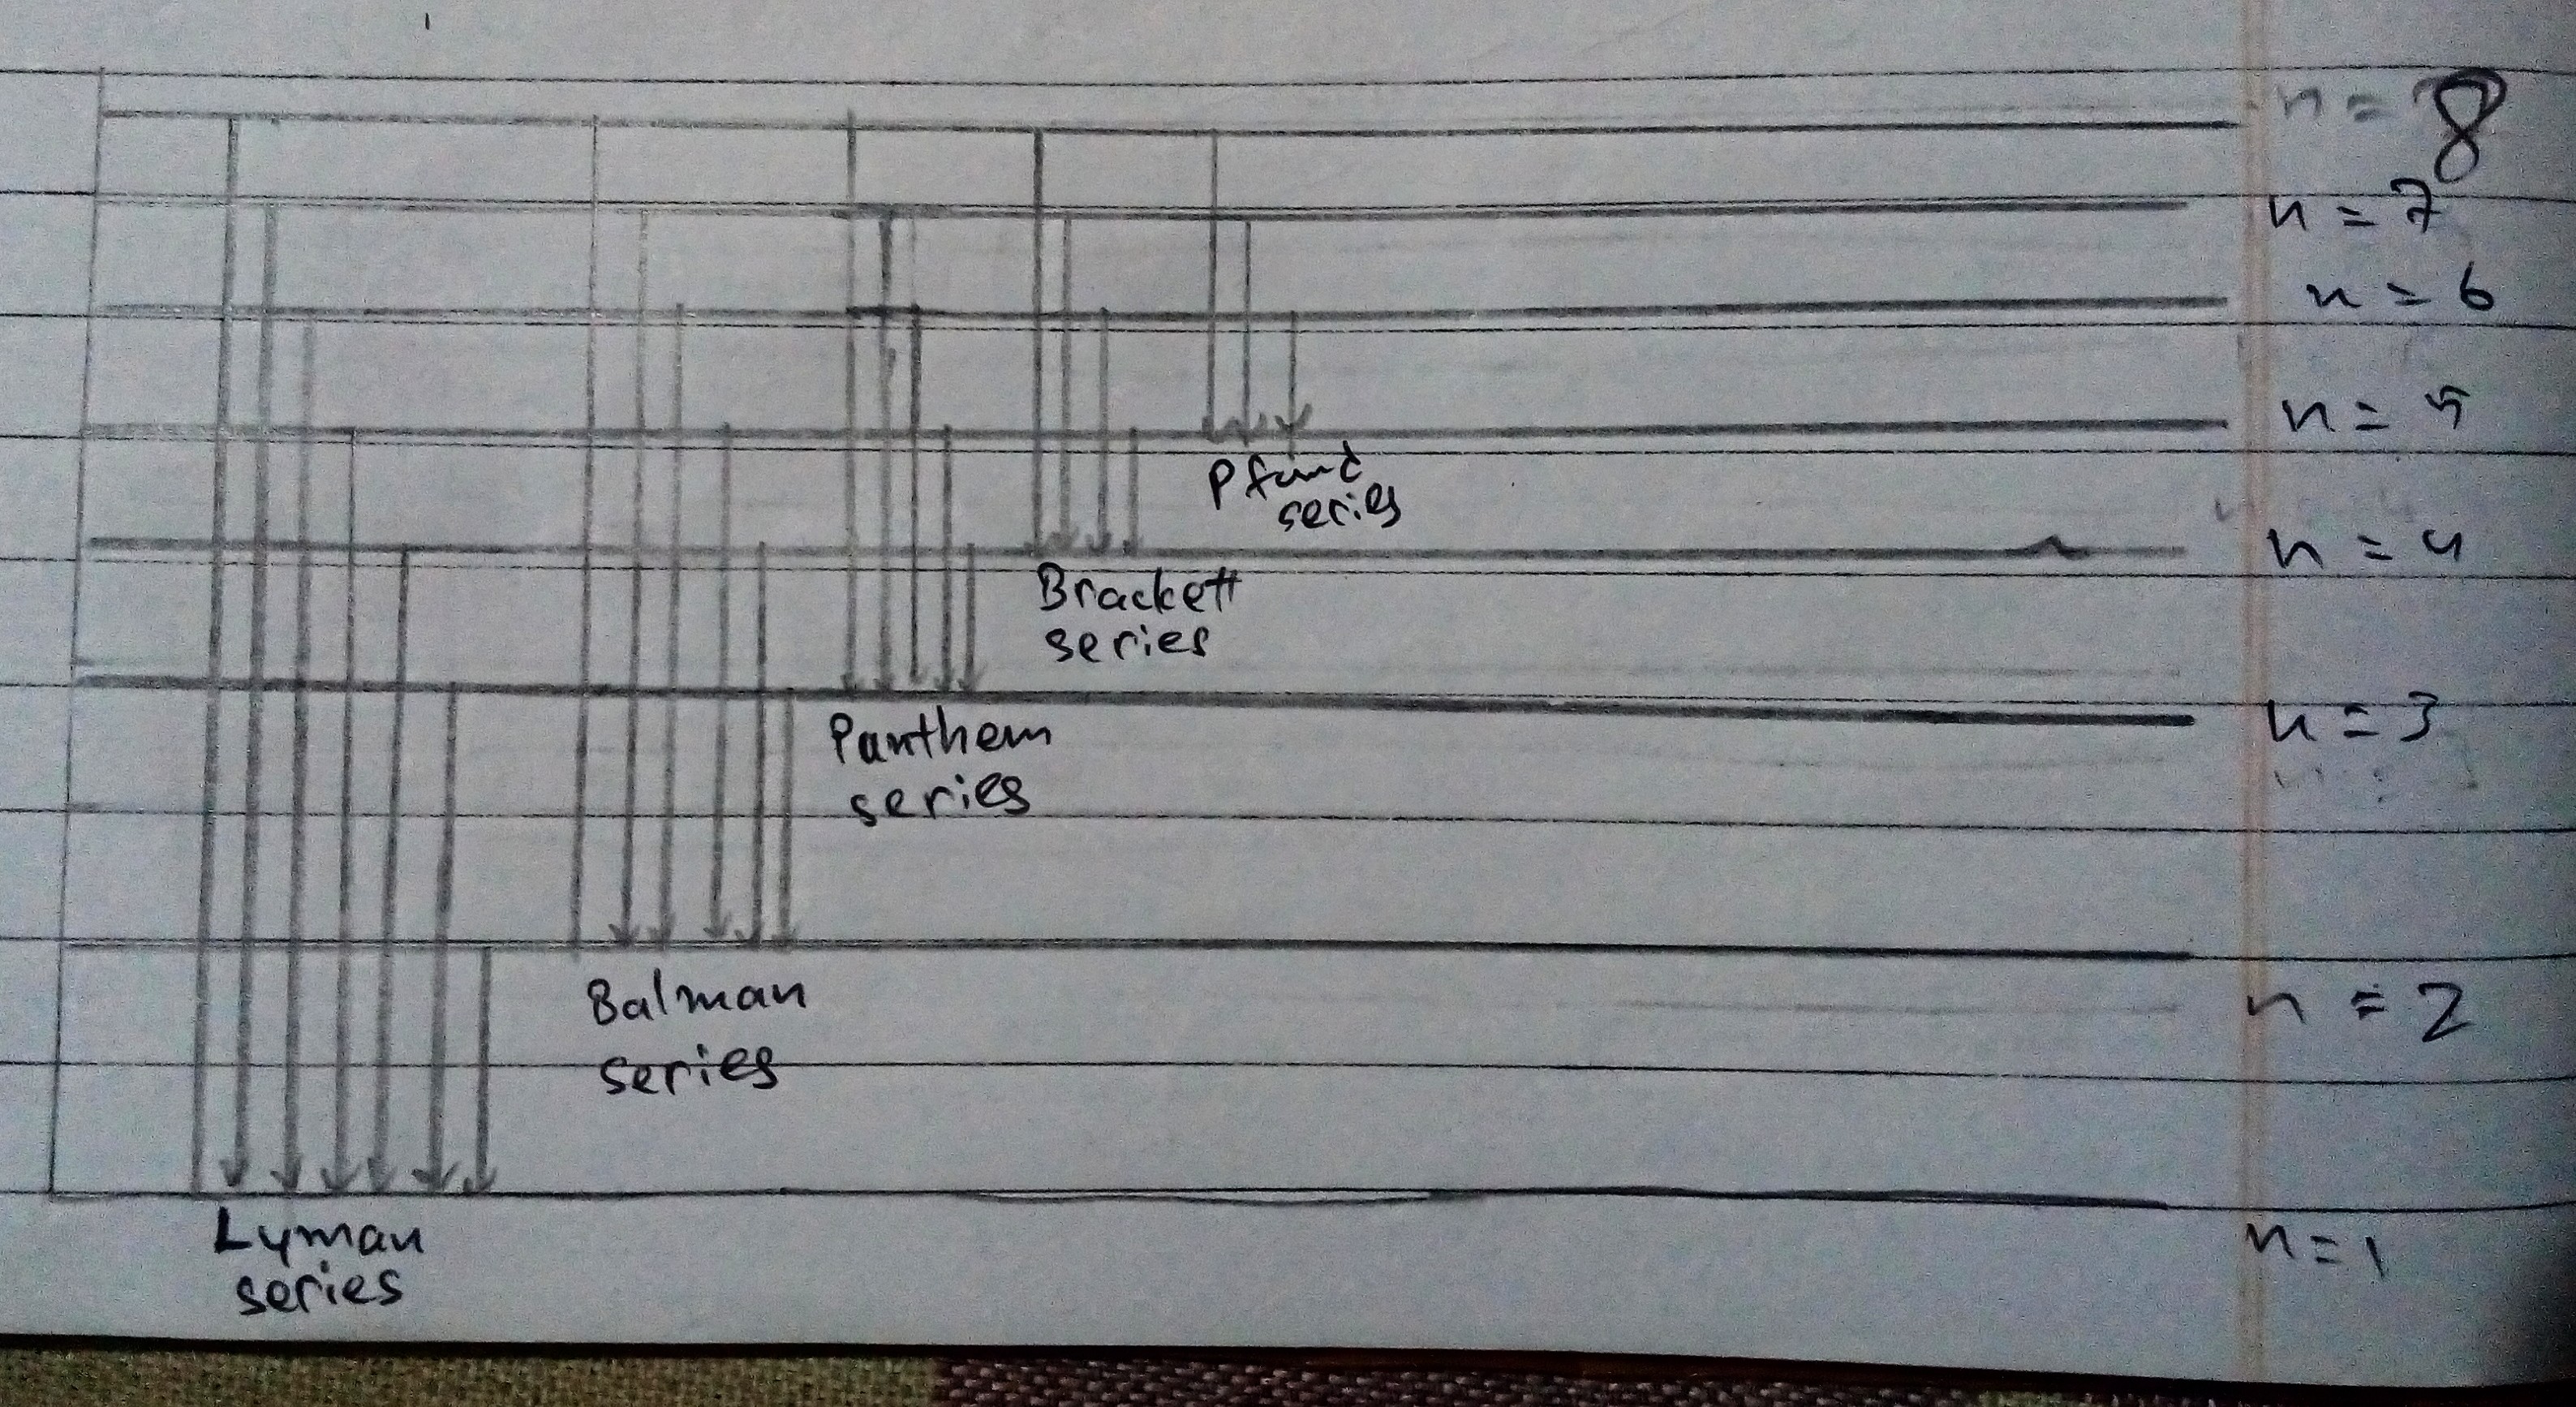 n = 8
n = 7
n = 6
n = 5
Pfund
series
n = 4
Brackett
series
n = 3
Panthem
series
n = 2
Balman
series
n = 1
Lyman
series